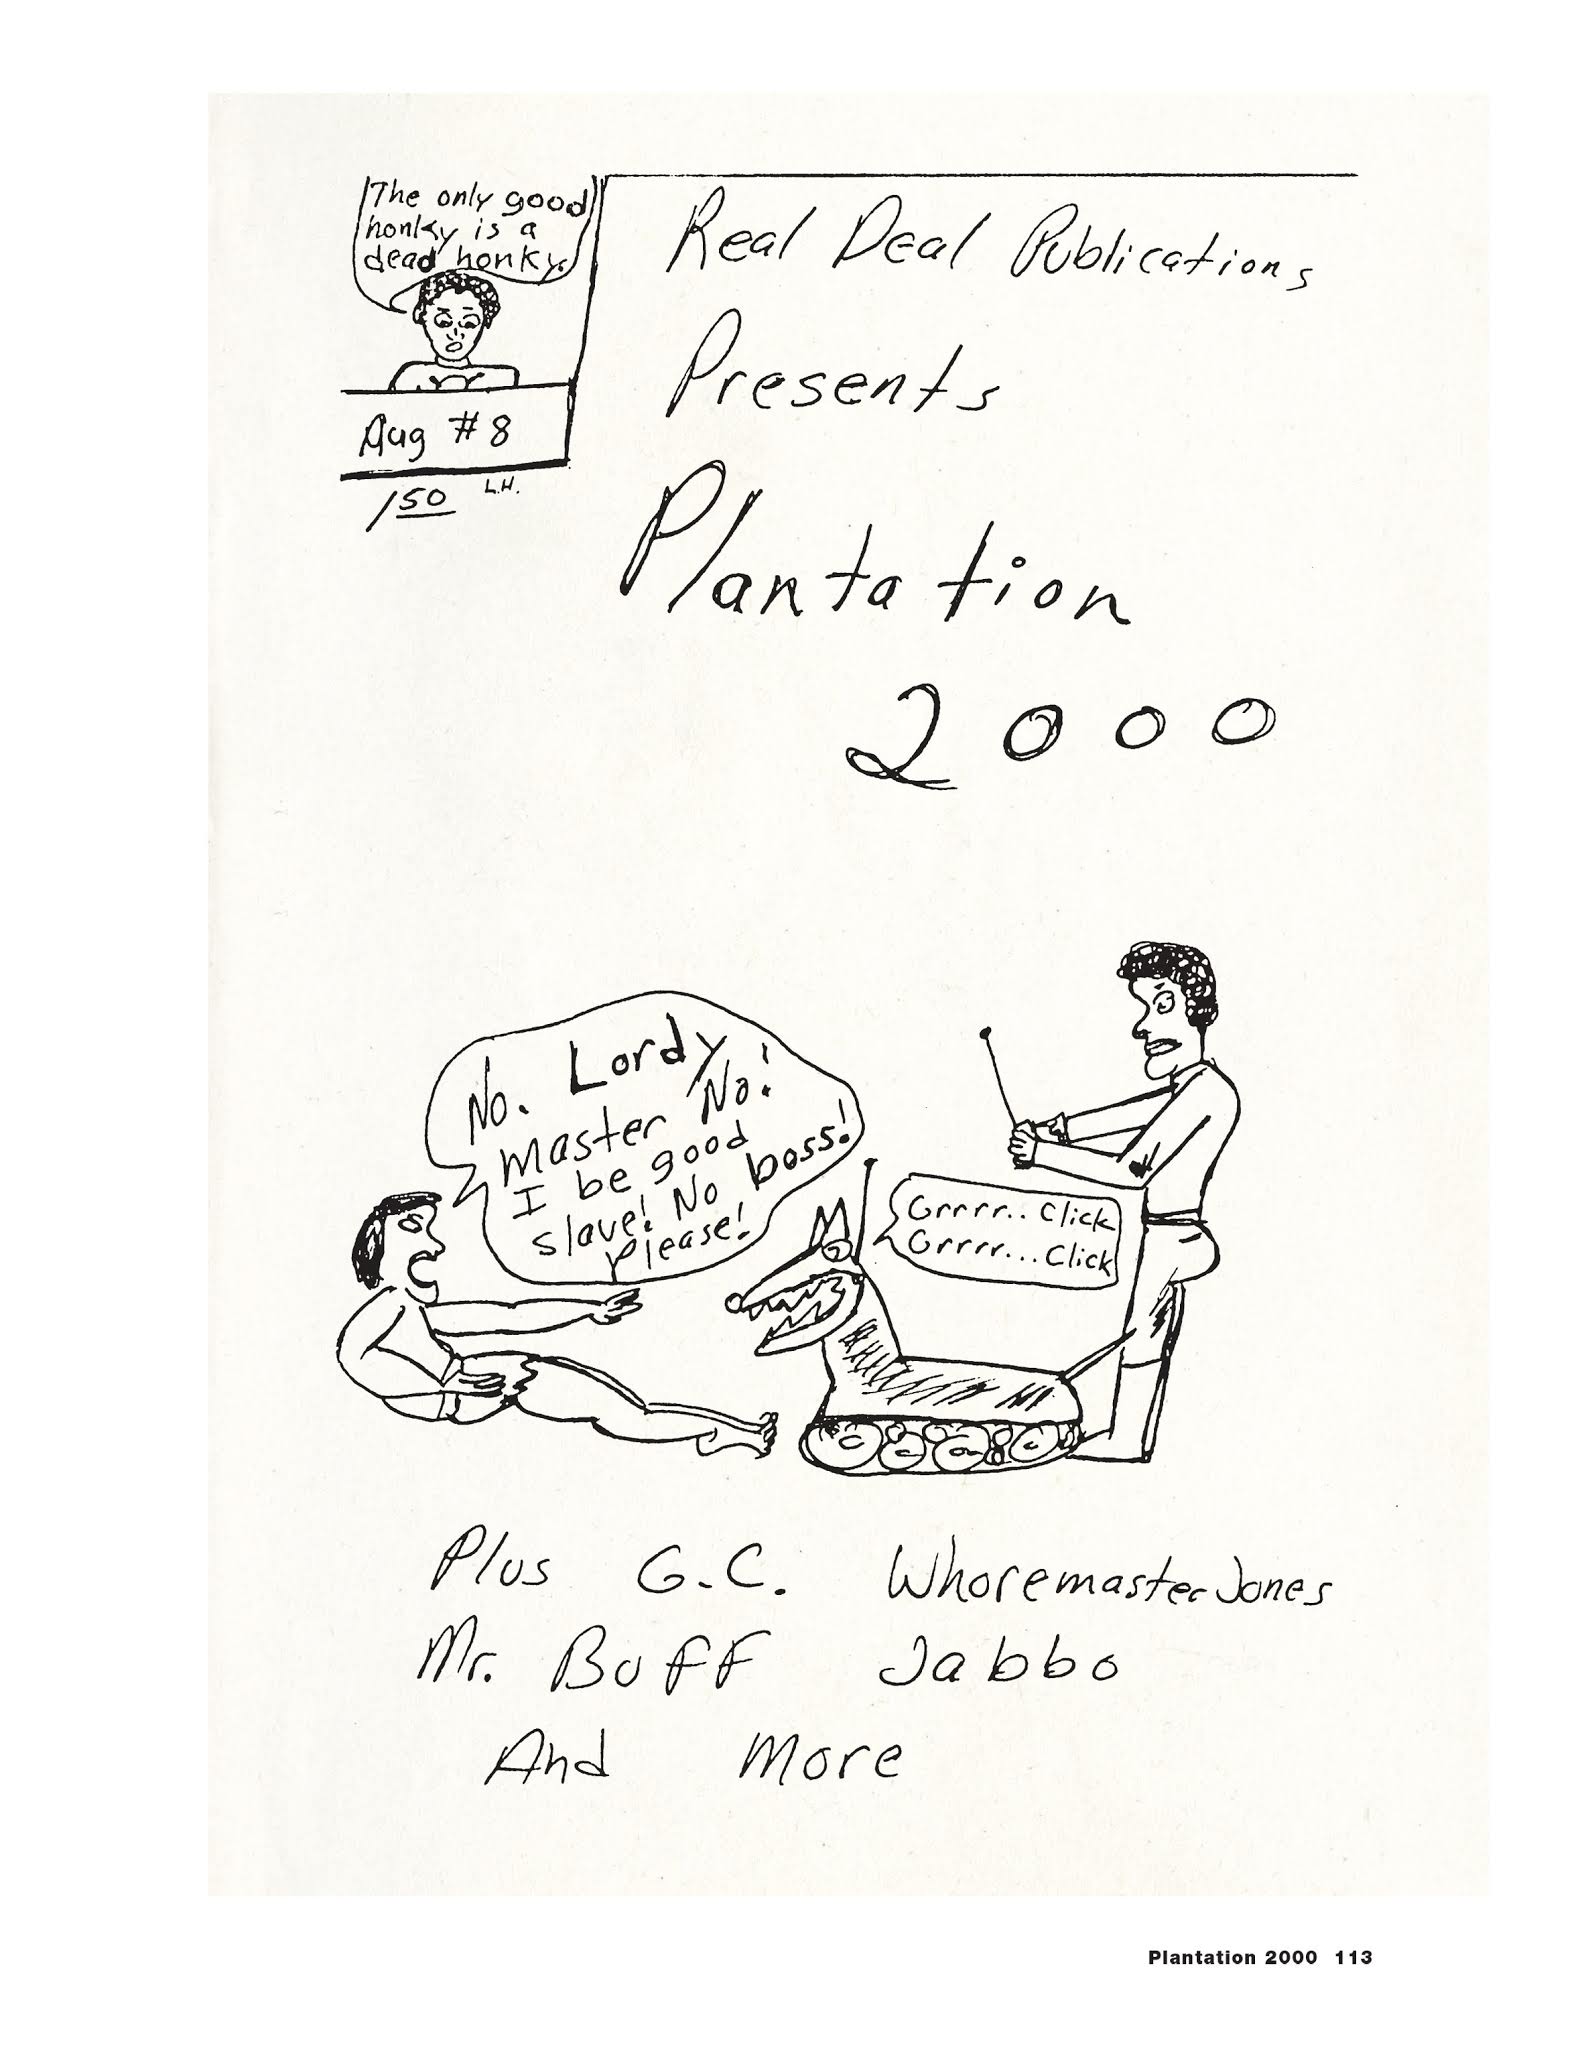 The only good
honky is a
dead honky.
Aug #8
1 50
L.H.
Real Deal Publications
Presents
Plantation
2000
No. Lordy
Master No!
I be good
slave! No boss!
please!
Grrrr.. Click
Grrrr... Click
Plus G.C. Whoremaster Jones
Mr. Buff Jabbo
And More
Plantation 2000 113